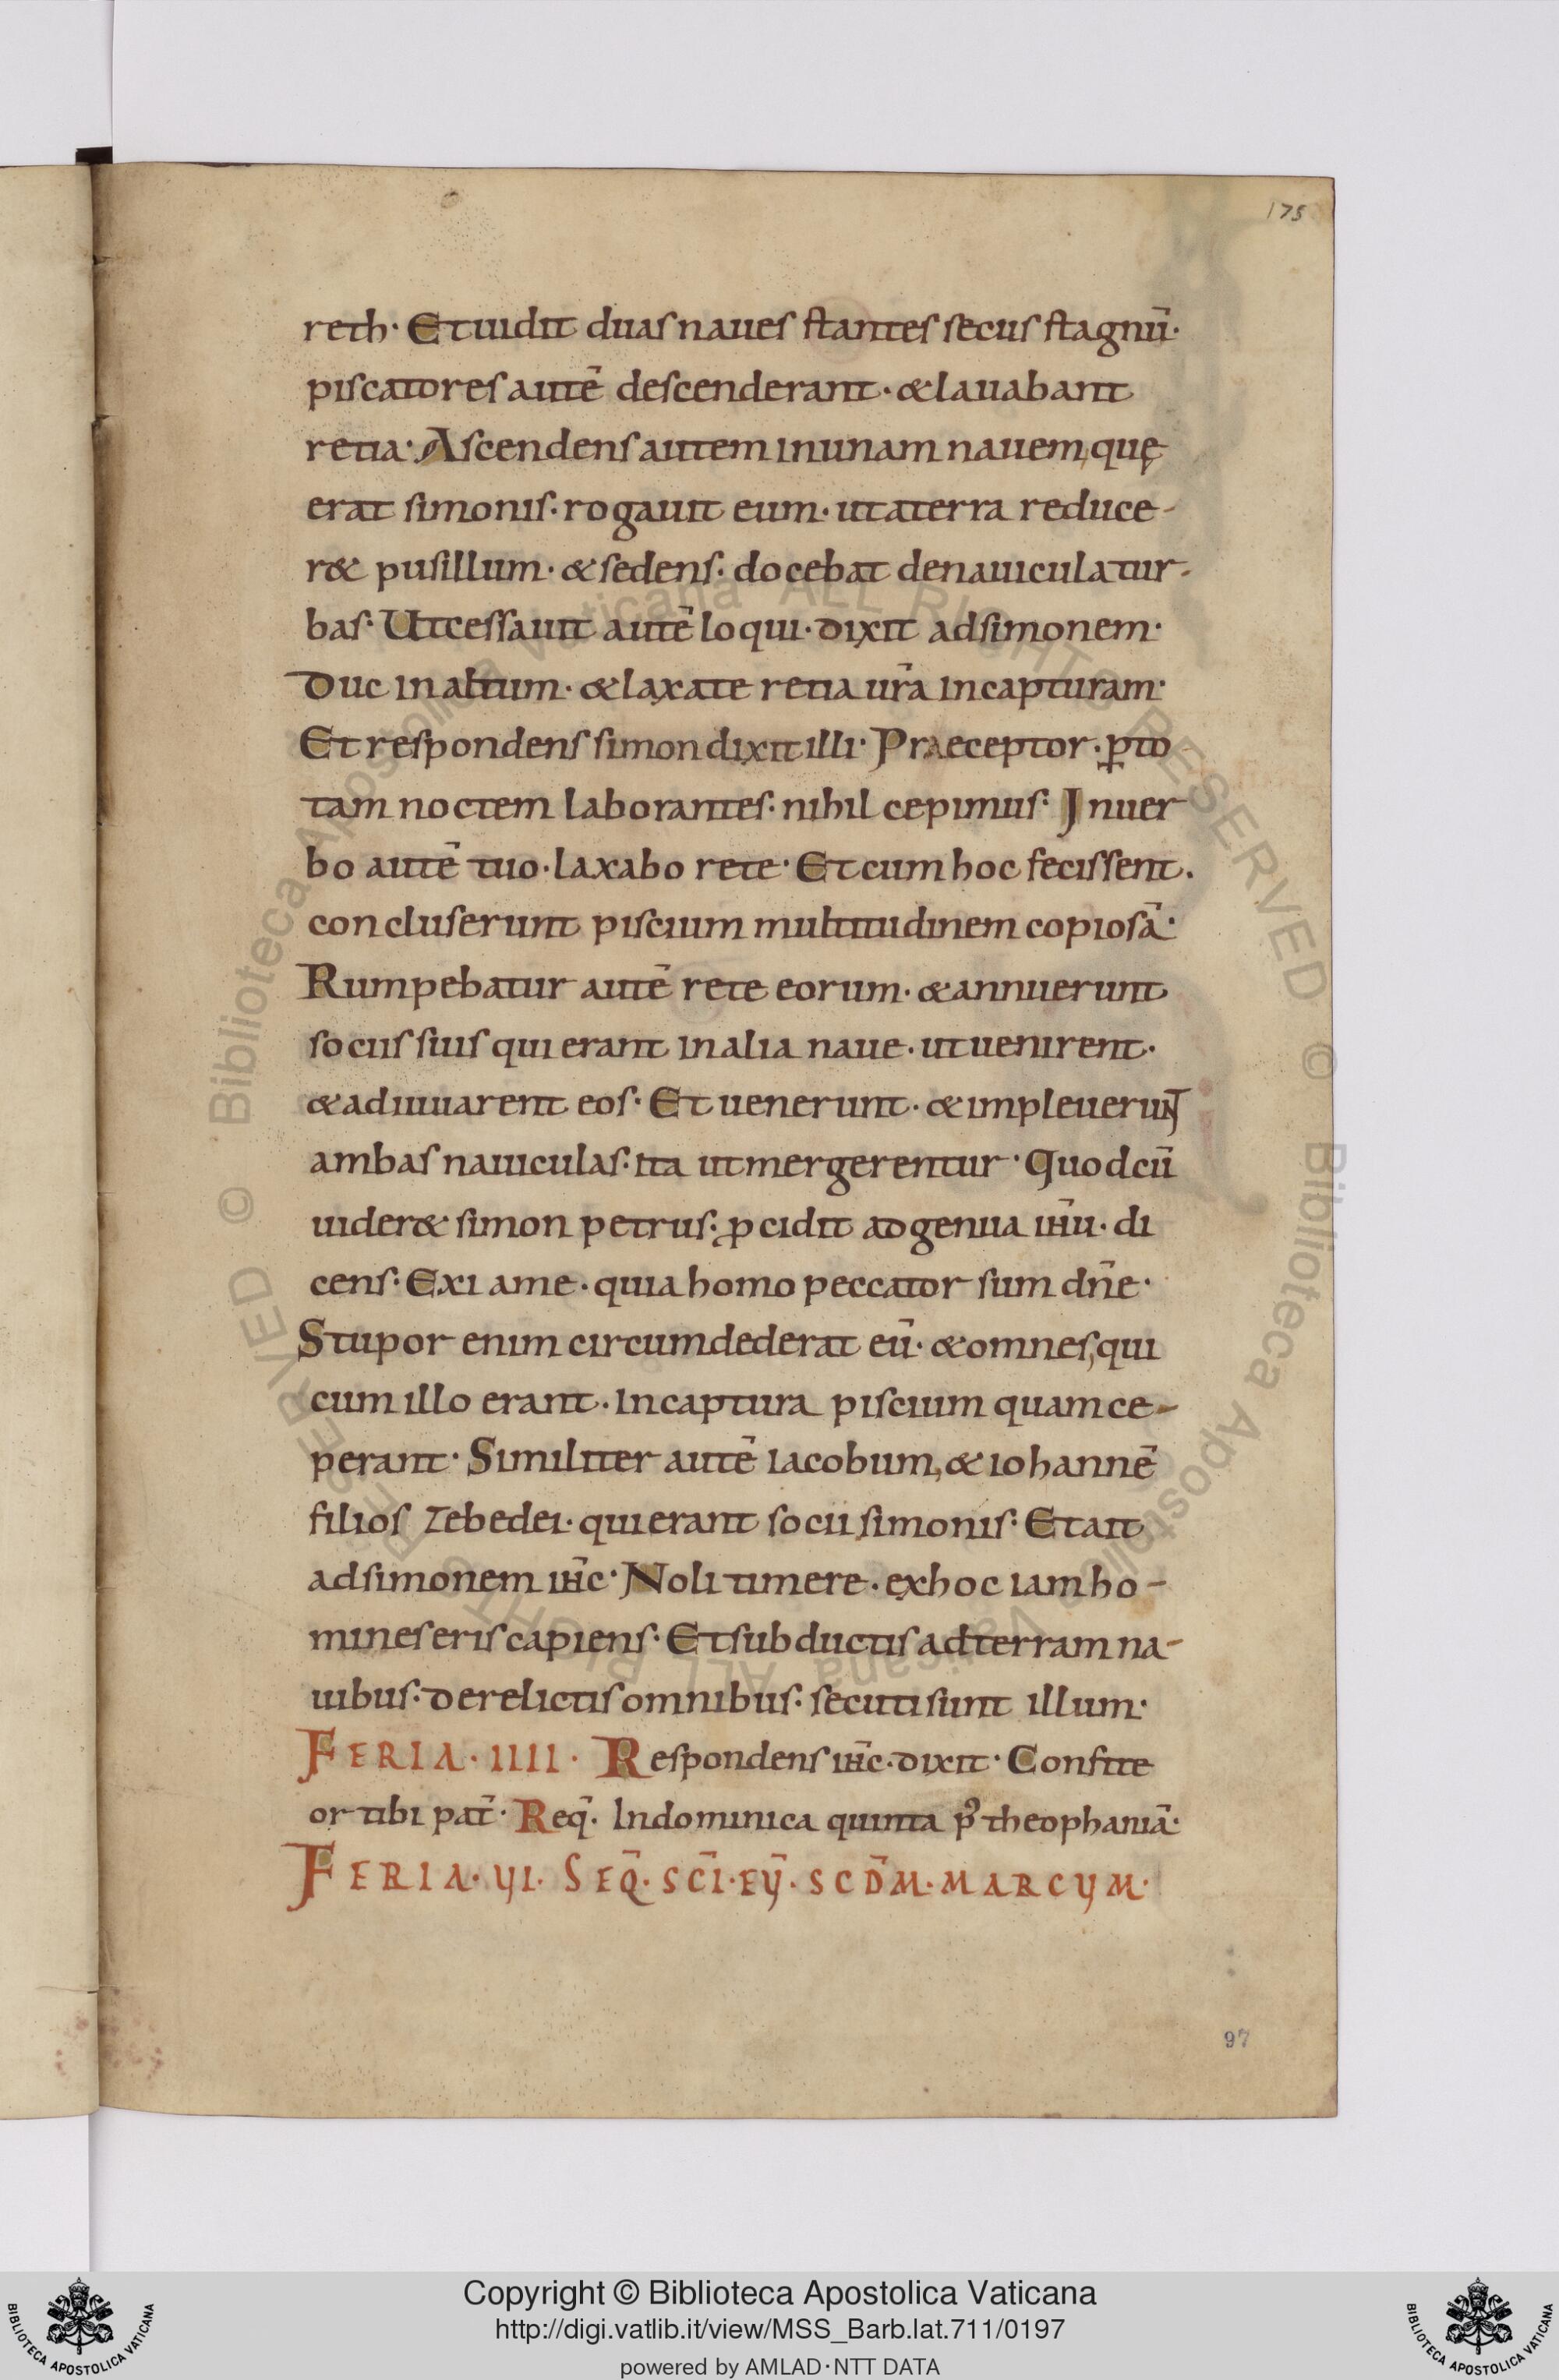 175
reth· Et uidit duas naues stantes secus stagnū·
piscatores autē descenderant· & lauabant
retia· Ascendens autem in unam nauem, quę
erat simonis· rogauit eum· ut a terra reduce-
r& pusillum· & sedens· docebat de nauicula tur-
bas· Ut cessauit autē loqui· dixit ad simonem·
Duc in altum· & laxate retia ur̄a in capturam·
Et respondens simon dixit illi· Praeceptor· ꝑ to
tam noctem laborantes· nihil cepimus· In uer
bo autē tuo· laxabo rete· Et cum hoc fecissent·
concluserunt piscium multitudinem copiosā·
Rumpebatur autē rete eorum· & annuerunt
sociis suis qui erant in alia naue· ut uenirent·
& adiuuarent eos· Et uenerunt· & impleuerunt
ambas nauiculas· ita ut mergerentur· Quod cū
uider& simon petrus· ꝓcidit ad genua ih̄u· di
cens· Exi a me· quia homo peccator sum dn̄e·
Stupor enim circumdederat eū· & omnes, qui
cum illo erant· in captura piscium quam ce-
perant· Similiter autē iacobum, & iohannē
filios zebedei· qui erant socii simonis· Et ait
ad simonem ih̄c· Noli timere· ex hoc iam ho-
mines eris capiens· Et subductis ad terram na-
uibus· derelictis omnibus· secuti sunt illum·
FERIA· IIII· Respondens ih̄c· dixit· Confite
or tibi pat̄· Req̄· In dominica quinta p̄ theophaniā·
FERIA· VI· SEQ̄· SC̄I· EV̄· SCD̄M· MARCVM·
97
Copyright © Biblioteca Apostolica Vaticana
http://digi.vatlib.it/view/MSS_Barb.lat.711/0197
powered by AMLAD·NTT DATA
BIBLIOTECA APOSTOLICA VATICANA
BIBLIOTECA APOSTOLICA VATICANA